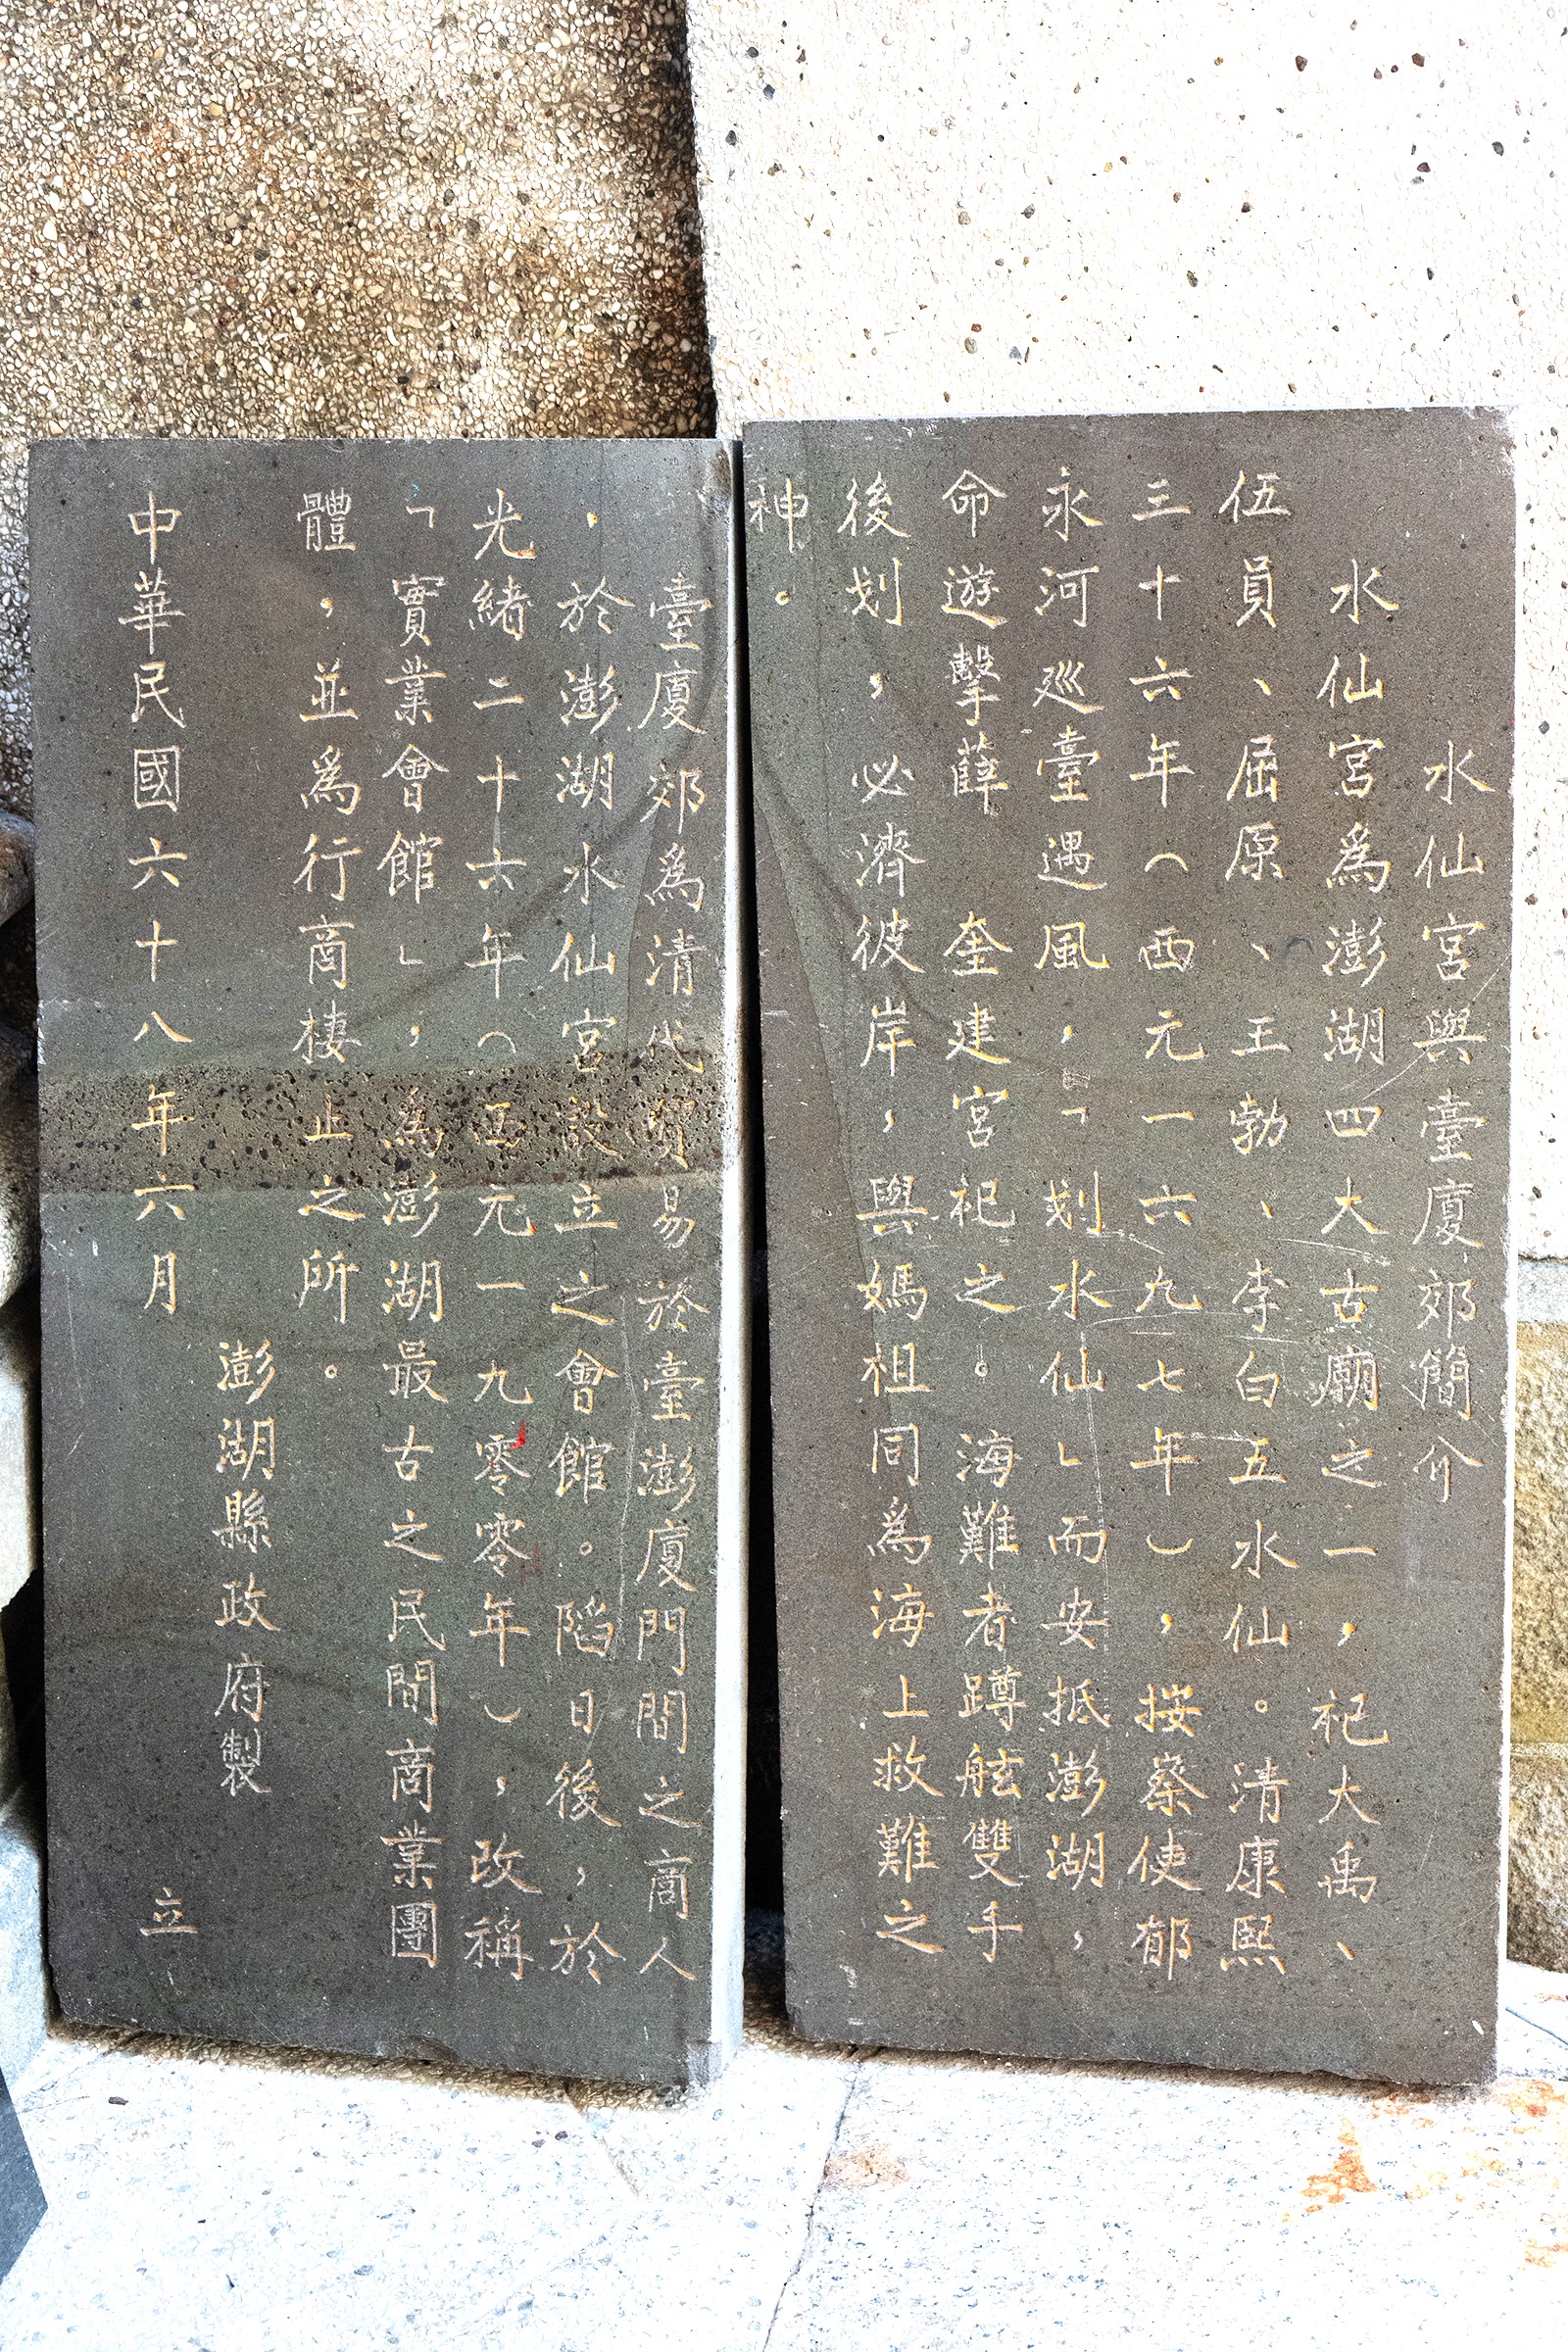 水仙宮與臺廈郊簡介
水仙宮為澎湖四大古廟之一，祀大禹、
伍員、屈原、王勃、李白五水仙。清康熙
三十六年（西元一六九七年），按察使郁
永河巡臺遇風，「划水仙」而安抵澎湖，
命遊擊薛　奎建宮祀之。海難者蹲舷雙手
後划，必濟彼岸，與媽祖同為海上救難之
神。
臺廈郊為清代貿易於臺澎廈門間之商人
，於澎湖水仙宮設立之會館。陷日後，於
光緒二十六年（西元一九零零年），改稱
「實業會館」，為澎湖最古之民間商業團
體，並為行商棲止之所。
澎湖縣政府製
中華民國六十八年六月　立